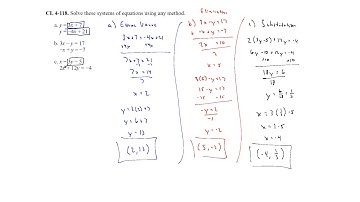 CL 4-118. Solve these systems of equations using any method.
a. y = 3x + 7
y = -4x + 21
b. 3x - y = 17
-x + y = -7
c. x = 3y - 5
2x + 12y = -4
a) Equal Values
3x+7 = -4x+21
+4x +4x
7x+7 = 21
-7 -7
7x = 14
7 7
x = 2
y = 3(2)+7
y = 6+7
y = 13
(2, 13)
Elimination
b) 3x - y = 17
-x + y = -7
2x = 10
2
x = 5
3(5) - y = 17
15 - y = 17
-15 -15
-y = 2
-1
y = -2
(5, -2)
c) Substitution
2(3y-5)+12y = -4
6y-10+12y = -4
+10 +10
18y = 6
18
x = 3(1/3)-5
x = 1-5
x = -4
(-4, 1/3)